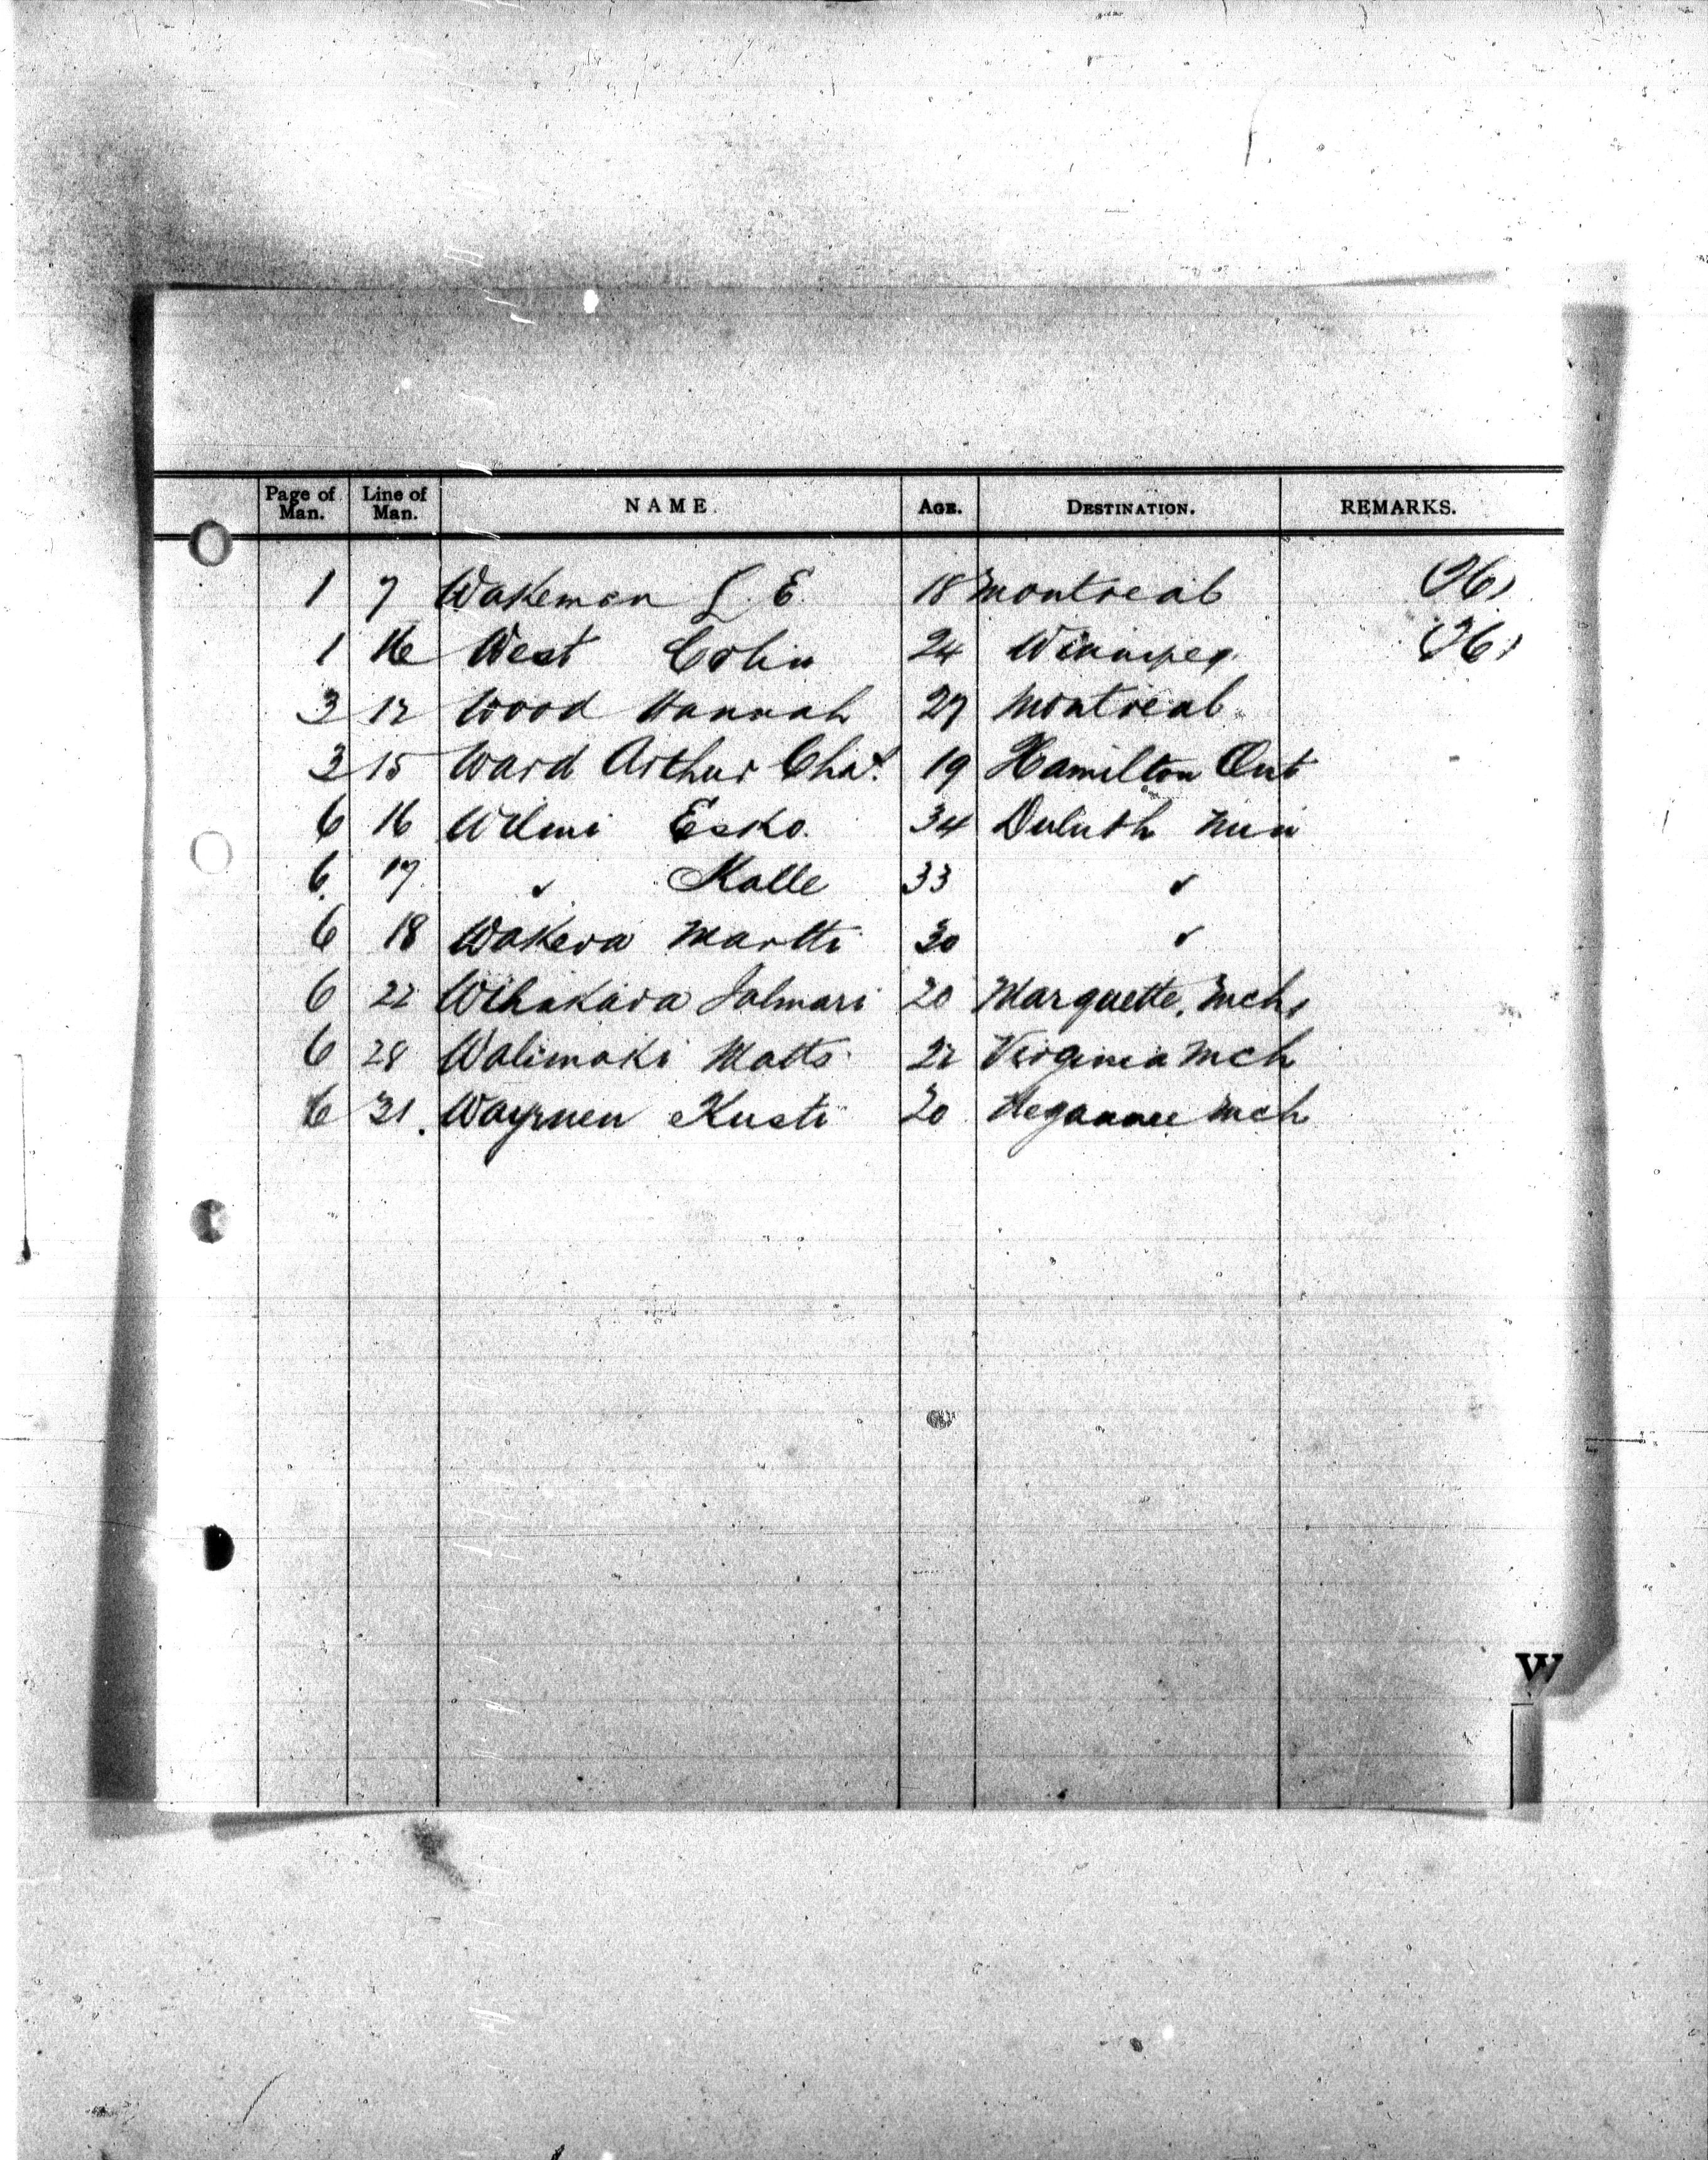 Page of Man. Line of Man. NAME. AGE. DESTINATION. REMARKS.
1 7 Wakeman L. E. 18 Montreal (26)
1 16 West Colin 24 Winnipeg (26)
3 12 Wood Hannah 27 Montreal
3 15 Ward Arthur Chas. 19 Hamilton Ont
6 16 Wilmi Esko. 34 Duluth Min
6 17 " Kalle 33 "
6 18 Wakeva Martti 30 "
6 22 Wihakara Jalmari 20 Marquette, Mch,
6 28 Walimaki Matts 22 Virginia Mch
6 31. Waynen Kusti 20 Negaunee Mch
W